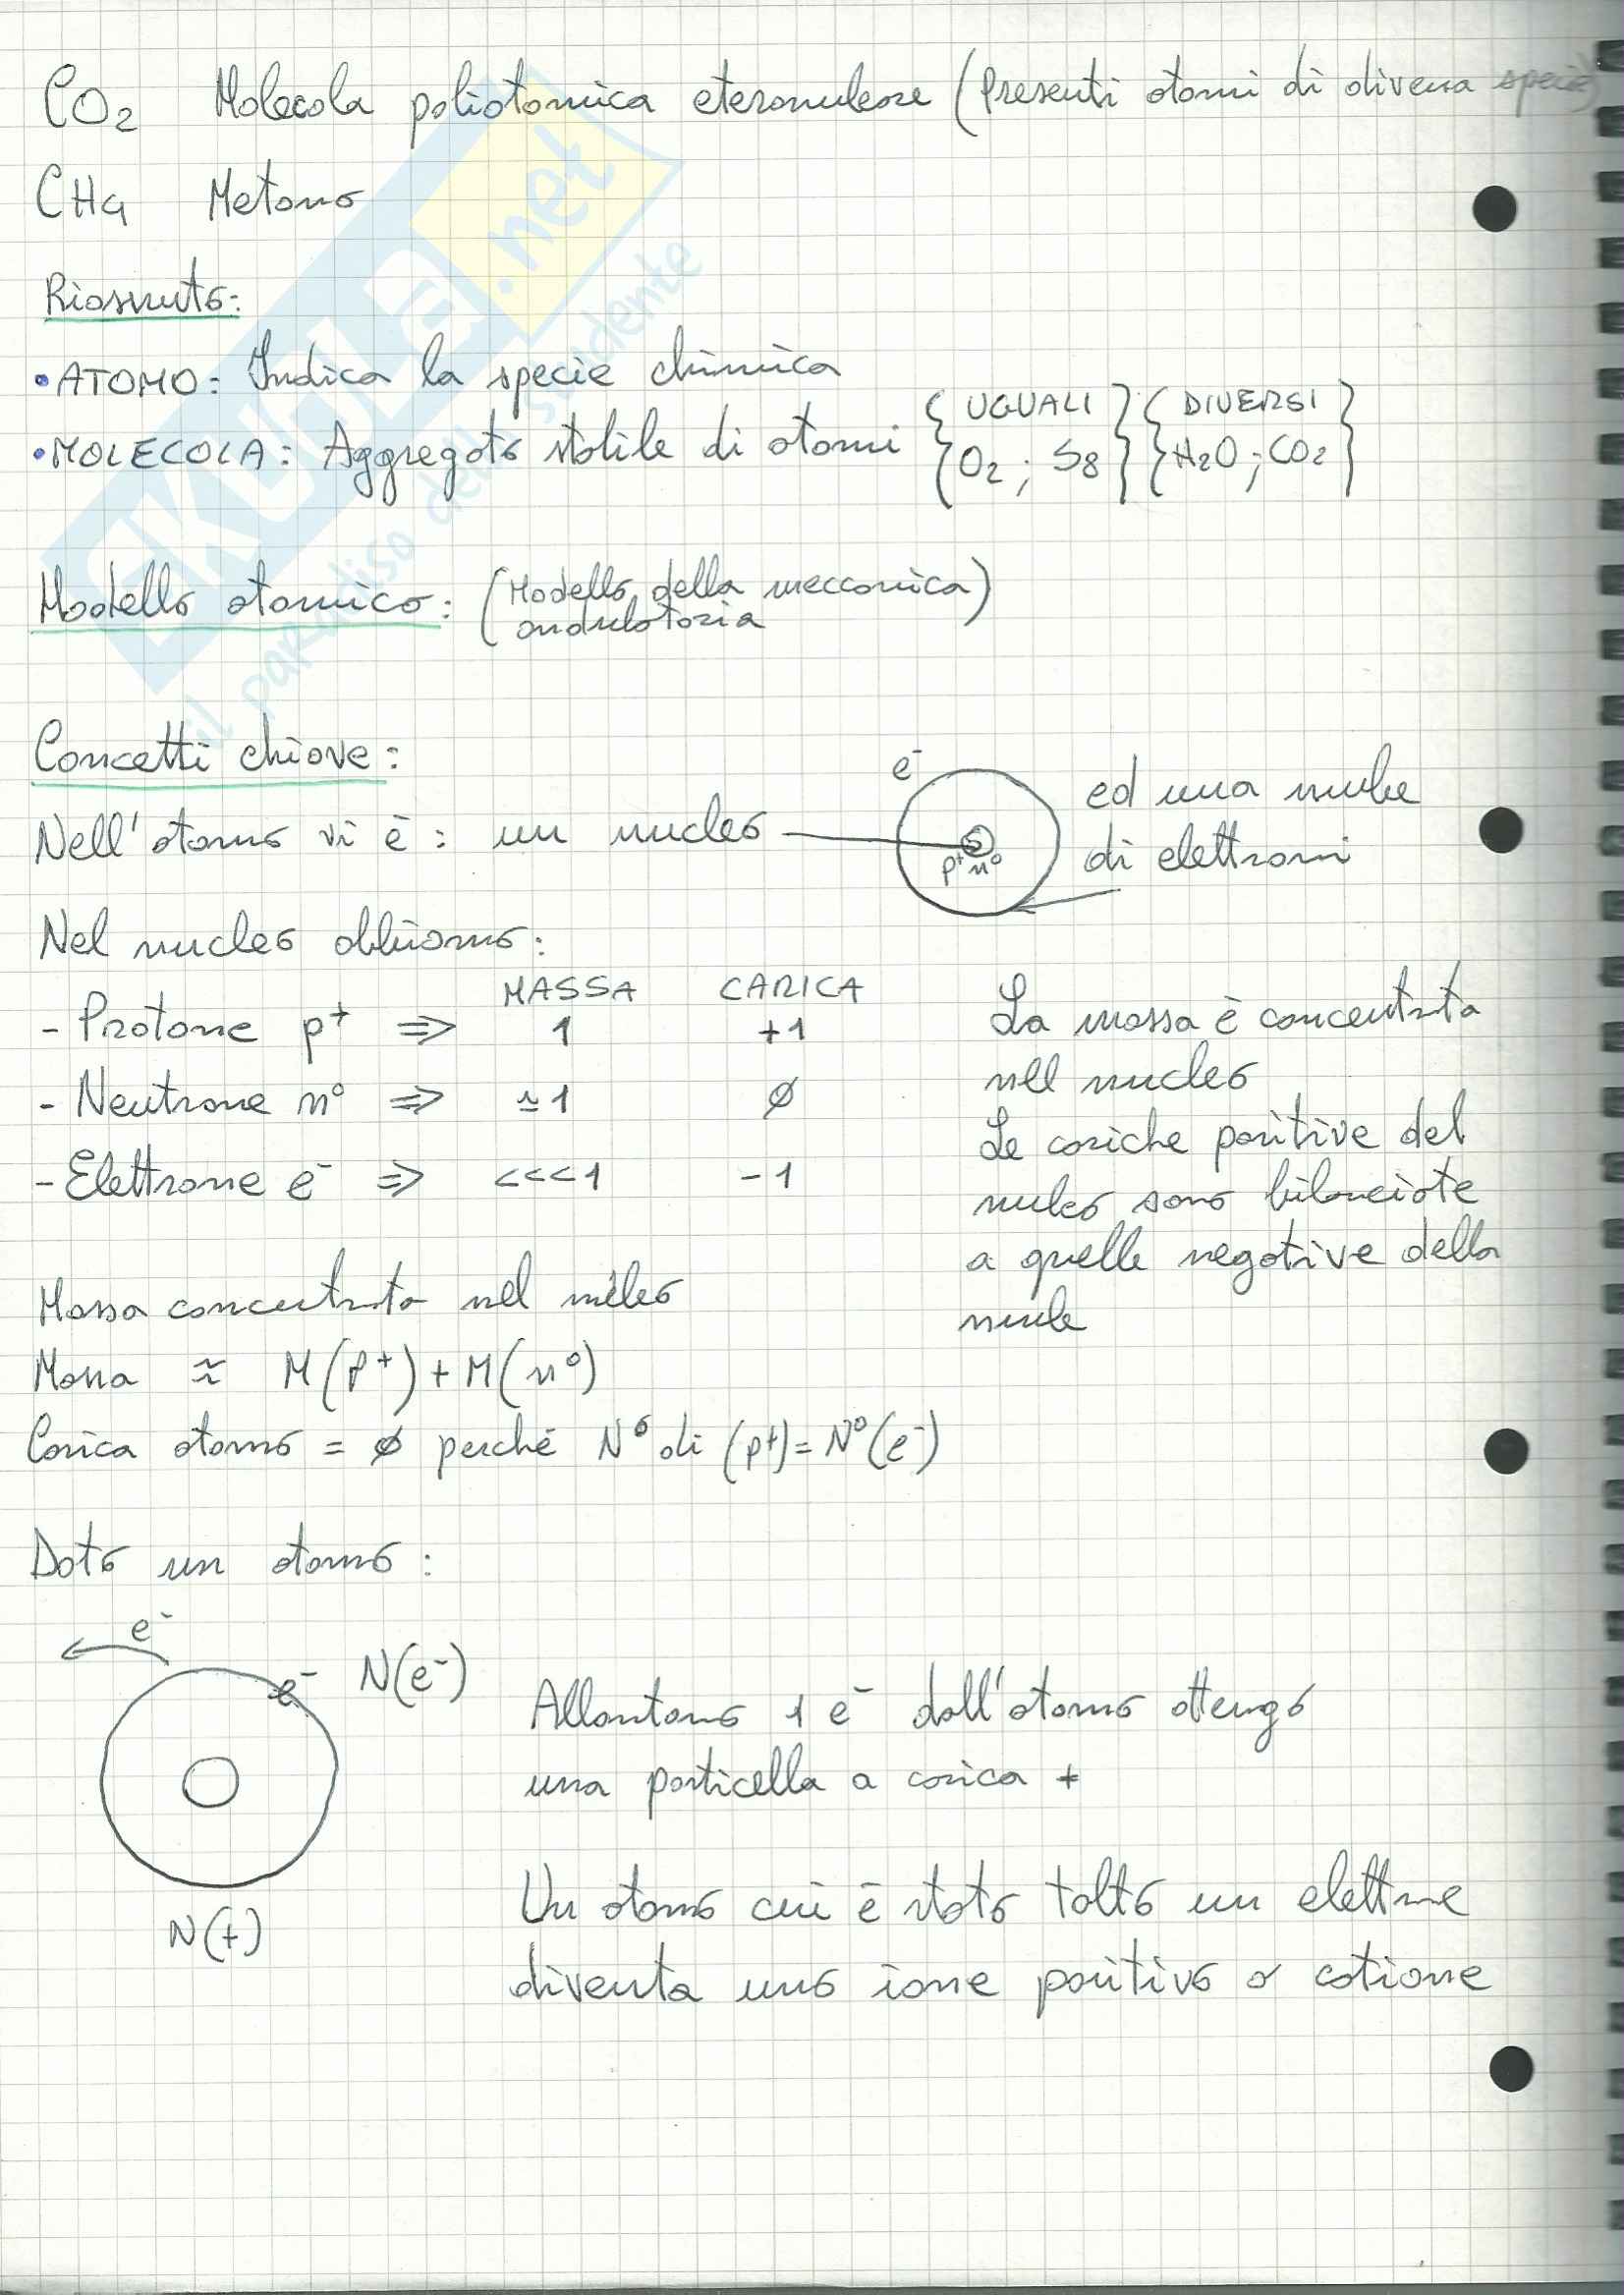 CO2 Molecola poliatomica eteronucleare (Presenti atomi di diversa specie)
CH4 Metano
Riassunto:
• ATOMO: Indica la specie chimica
• MOLECOLA: Aggregato stabile di atomi { UGUALI O2 ; S8 } { DIVERSI H2O ; CO2 }
Modello atomico: (Modello della meccanica ondulatoria)
Concetti chiave:
Nell'atomo vi è: un nucleo
e-
p+ n°
ed una nube
di elettroni
Nel nucleo abbiamo:
MASSA CARICA
- Protone p+ => 1 +1
- Neutrone n° => ≃1 ∅
- Elettrone e- => <<<1 -1
La massa è concentrata
nel nucleo
Le cariche positive del
nucleo sono bilanciate
a quelle negative della
nube
Massa concentrata nel nucleo
Massa ≈ M(p+) + M(n°)
Carica atomo = ∅ perché N° di (p+) = N°(e-)
Dato un atomo:
e-
e- N(e-)
N(+)
Allontano 1 e- dall'atomo ottengo
una particella a carica +
Un atomo cui è stato tolto un elettrone
diventa uno ione positivo o catione
SKUOLA.net
il paradiso dello studente